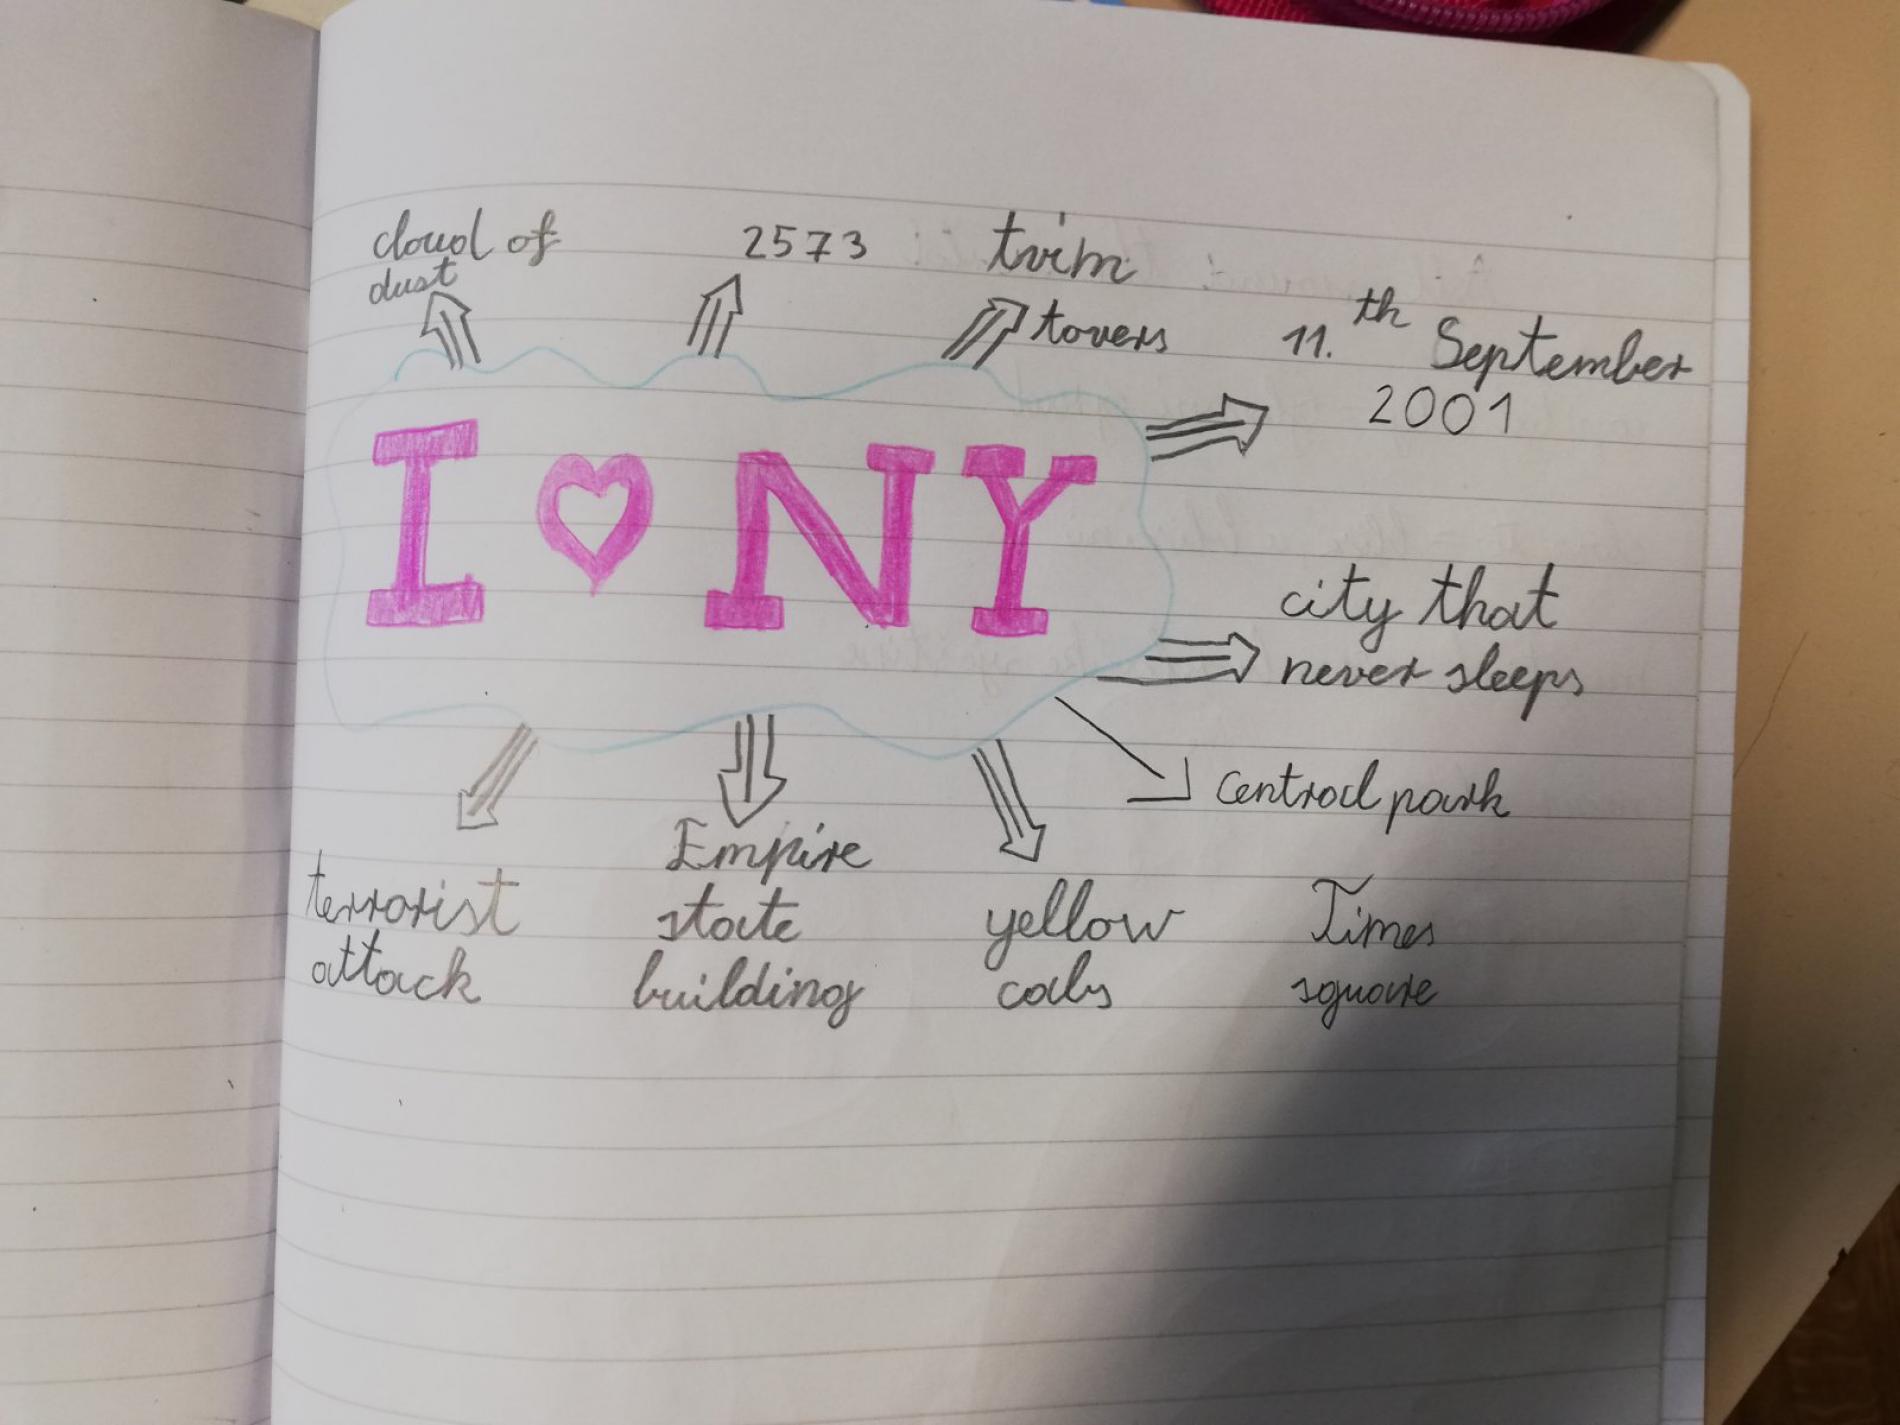 cloud of
dust
2573
tvim
tovers
11.th September
2001
I ♡ NY
city that
never sleeps
Central park
terrorist
attack
Empire
state
building
yellow
cabs
Times
square